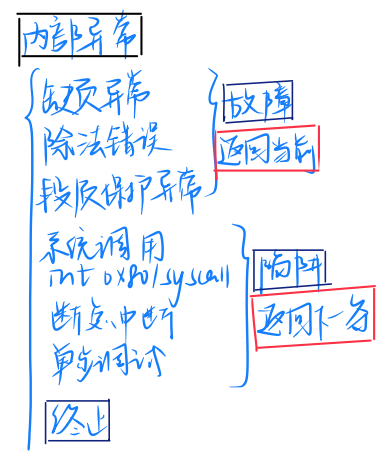 内部异常
缺页异常
故障
除法错误
返回当前
段级保护异常
系统调用
int 0x80/syscall
陷阱
断点中断
返回下一条
单步调试
终止